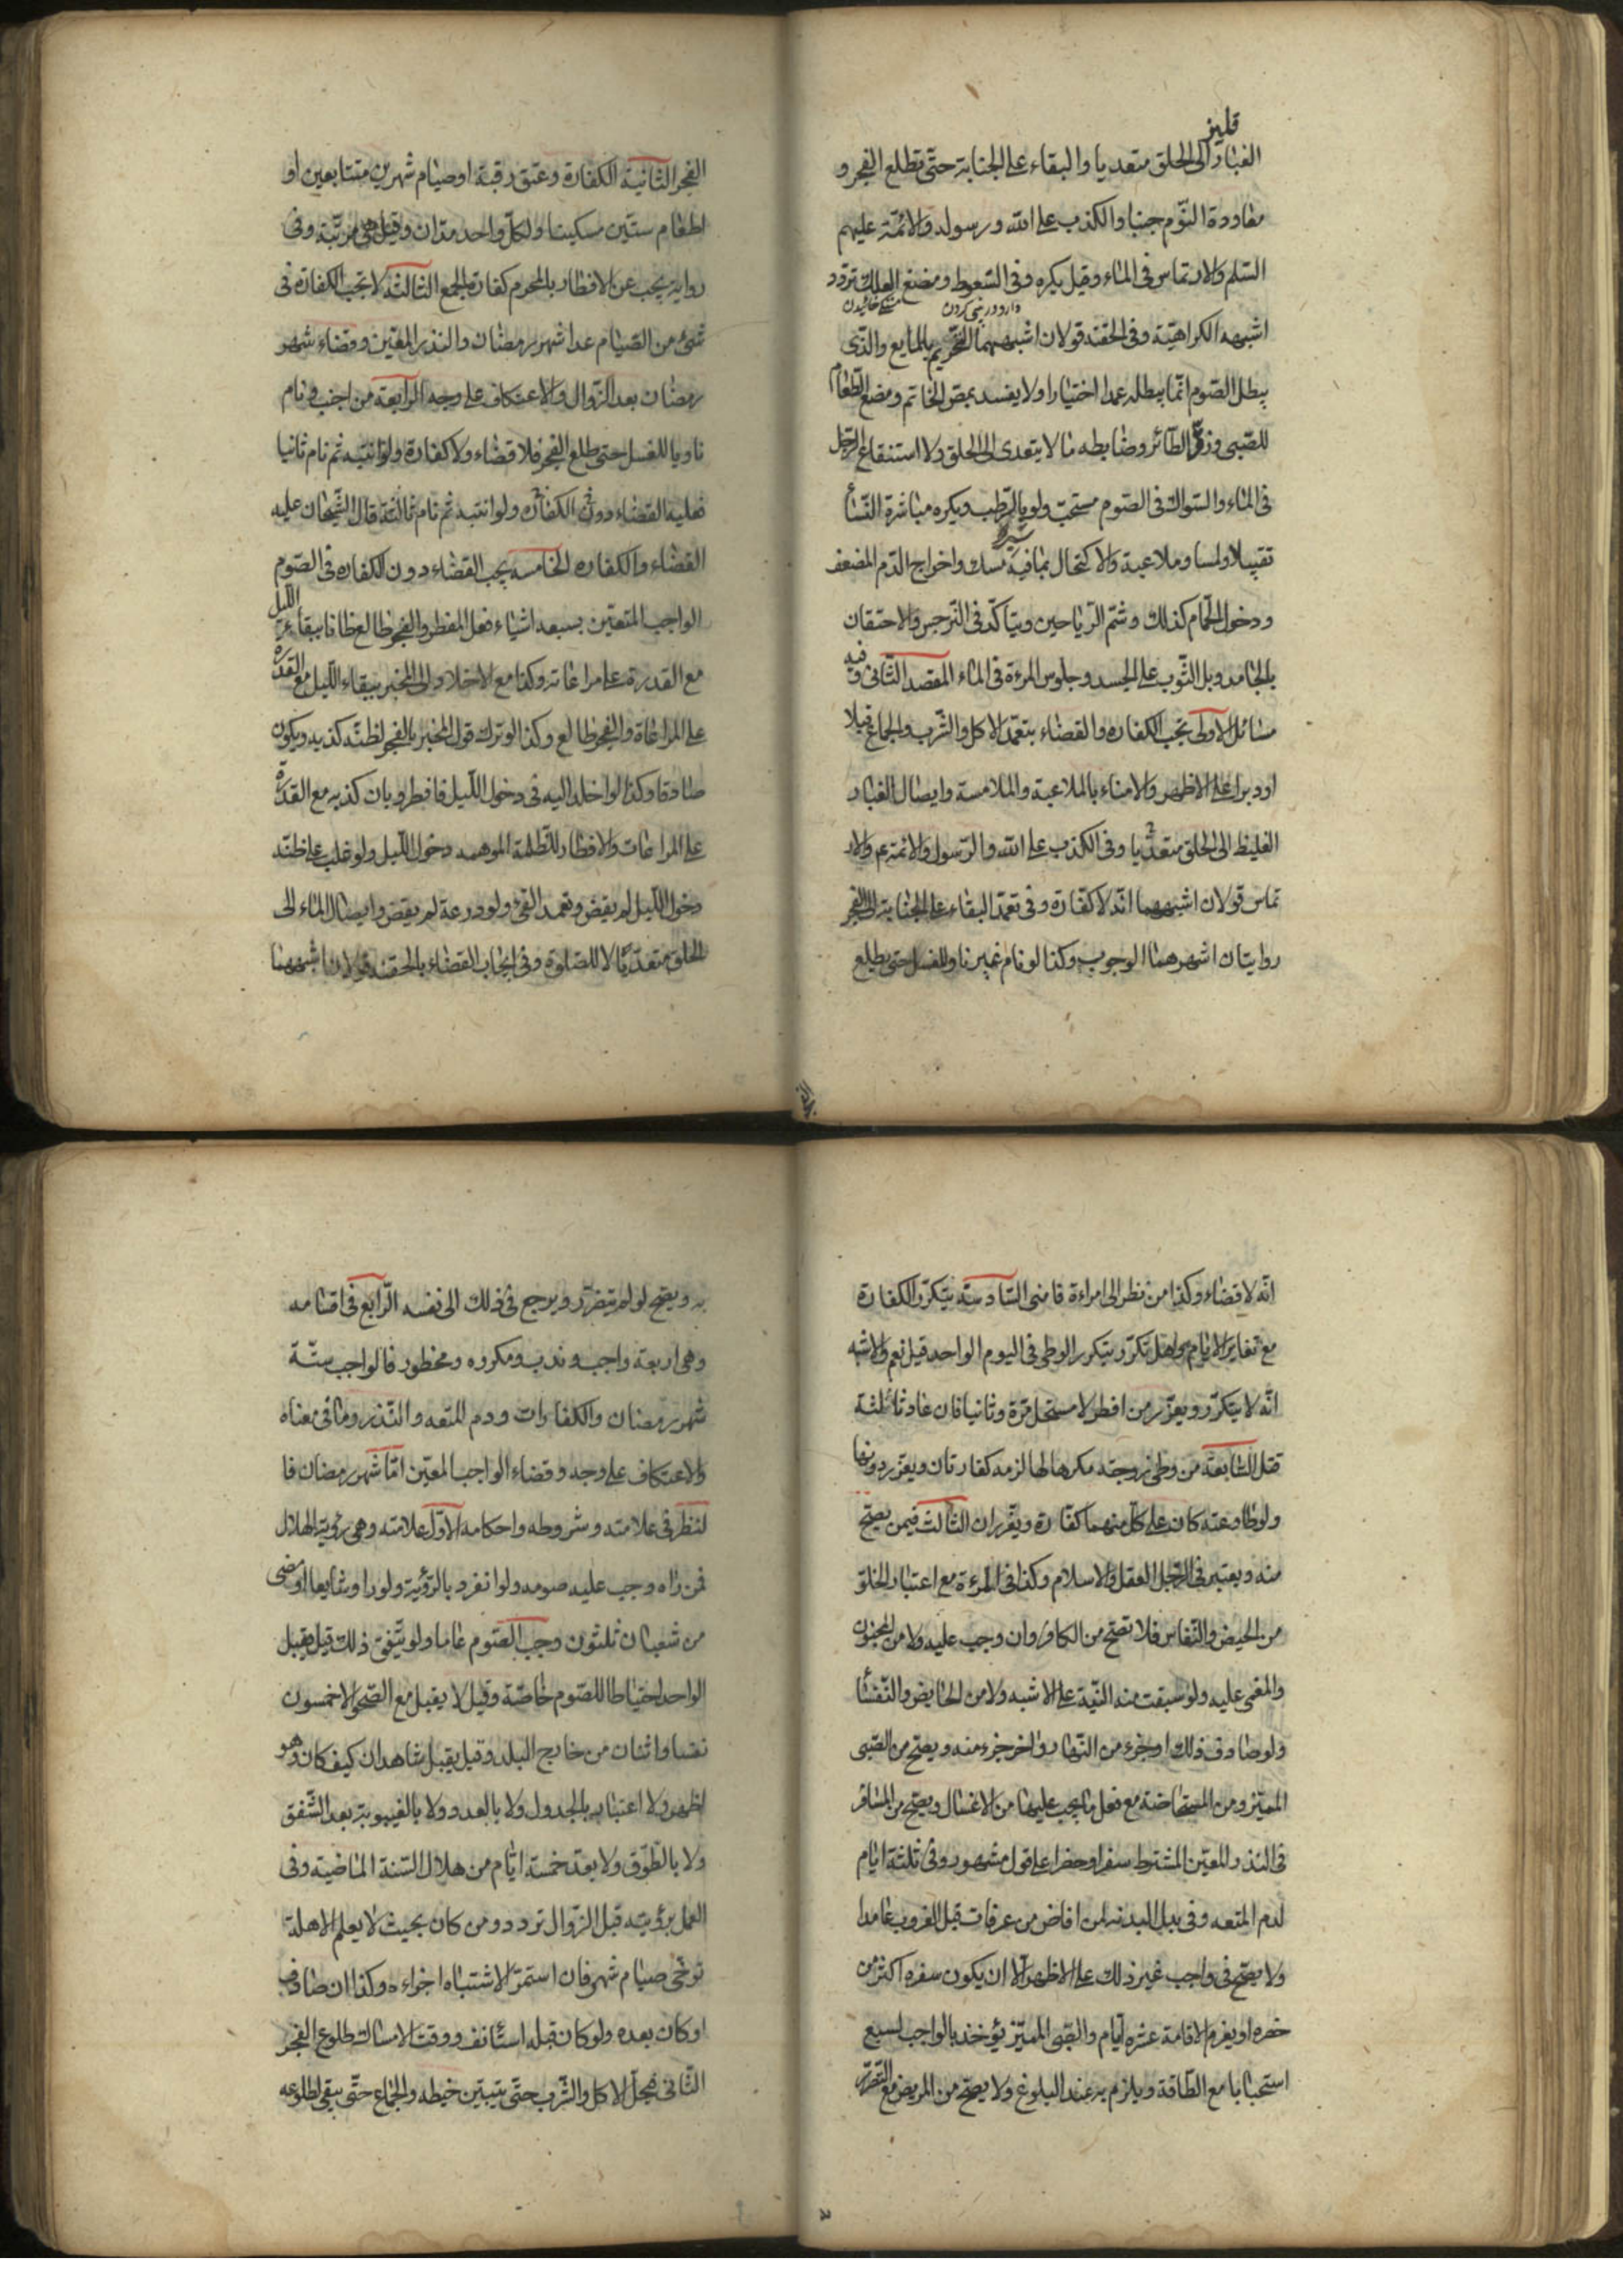 قليز
الغبار الى الحلق متعديا والبقاء على الجنابة حتى تطلع الفجر و
معاودة النوم جنبا والكذب على الله ورسوله والائمة عليهم
السلم والارتماس فى الماء وقيل يكره وفى السعوط ومضغ العلك تردد
دارو در بينى كردن
خائيدن
اشبهه الكراهية وفى الحقنة قولان اشبههما التحريم بالمايع والذى
يبطل الصوم انما يبطله عمدا اختيارا ولا يفسد بمص الخاتم ومضغ الطعام
للصبى وزق الطائر وضابطه ما لا يتعدى الى الحلق ولا استنقاع الرجل
فى الماء والسواك فى الصوم مستحب ولو بالرطب ويكره مباشرة النساء
تقبيلا ولمسا وملاعبة والاكتحال بما فيه مسك واخراج الدم المضعف
ودخول الحمام كذلك وشم الرياحين ويتاكد فى النرجس والاحتقان
بالجامد وبل الثوب على الجسد وجلوس المرءة فى الماء المقصد الثانى وفيه
مسائل الاولى تجب الكفارة والقضاء بتعمد الاكل والشرب والجماع قبلا
او دبرا على الاظهر والامناء بالملاعبة والملامسة وايصال الغبار
الغليظ الى الحلق متعديا وفى الكذب على الله والرسول والائمة ع م والار
تماس قولان اشبههما انه لا كفارة وفى تعمد البقاء على الجنابة الى الفجر
روايتان اشهرهما الوجوب وكذا لو نام غير ناو للغسل حتى يطلع
الفجر الثانية الكفارة وعتق رقبة او صيام شهرين متتابعين او
اطعام ستين مسكينا ولكل واحد مدان وقيل هى مرتبة وفى
رواية يجب عن الافطار بالمحرم كفارة الجمع الثالثة لا تجب الكفارة فى
شئ من الصيام عدا شهر رمضان والنذر المعين وقضاء شهر
رمضان بعد الزوال والاعتكاف على وجه الرابعة من اجنب ونام
ناويا للغسل حتى طلع الفجر فلا قضاء ولا كفارة ولو انتبه ثم نام ثانيا
فعليه القضاء دون الكفارة ولو انتبه ثم نام ثالثة قال الشيخان عليه
القضاء والكفاره الخامسة يجب القضاء دون الكفاره فى الصوم
الواجب المتعين بسبعة اشياء فعل المفطر والفجر طالع ظانا ببقاء الليل
مع القدرة على مراعاته وكذا مع الاخلاد الى المخبر ببقاء الليل مع القدرة
على المراعاة والفجر طالع وكذا لو ترك قول المخبر بالفجر لظنه كذبه ويكون
صادقا وكذا لو اخلد اليه فى دخول الليل فافطر وبان كذبه مع القدرة
على المراعات والافطار للظلمة الموهمه دخول الليل ولو غلب على ظنه
دخول الليل لم يقض وتعمد القئ ولو درعه لم يقض وايصال الماء الى
الحلق متعديا لا للصلوة وفى ايجاب القضاء بالحقنة قولان اشبههما
انه لا قضاء وكذا من نظر الى امراءة فامنى السادسة يتكرر الكفارة
مع تغاير الايام وهل تكرر بتكرر الوطى فى اليوم الواحد قيل نعم والاشبه
انه لا يتكرر ويعزر من افطر لا مستحل مرة وثانيا فان عاد ثالثة
قتل السابعة من وطى زوجته مكرها لها لزمه كفارتان ويعزر دونها
ولو طاوعته كان على كل منهما كفارة ويعزران الثالث فيمن يصح
منه ويعتبر فى الرجل العقل والاسلام وكذا فى المرءة مع اعتبار الخلو
من الحيض والنفاس فلا تصح من الكافر وان وجب عليه ولا من المجنون
والمغمى عليه ولو سبقت منه النية على الاشبه ولا من الحايض والنفساء
ولو صادف ذلك اول جزء من النهار او اخر جزء منه ويصح من الصبى
المميز ومن المستحاضة مع فعل ما يجب عليها من الاغسال ويصح من المسافر
فى النذر المعين المشترط سفرا وحضرا على قول مشهور وفى ثلثة ايام
لدم المتعه وفى بدل البدنة لمن افاض من عرفات قبل الغروب عامدا
ولا يصح فى واجب غير ذلك على الاظهر الا ان يكون سفره اكثر من
حضره او يعزم الاقامة عشره ايام والصبى المميز يؤخذ بالواجب لسبع
استحبابا مع الطاقة ويلزم به عند البلوغ ولا يصح من المريض مع التضرر
به ويصح لو لم يتضرر ويرجع فى ذلك الى نفسه الرابع فى اقسامه
وهى اربعة واجب وندب ومكروه ومحظور فالواجب ستة
شهر رمضان والكفارات ودم المتعه والنذر وما فى معناه
والاعتكاف على وجه وقضاء الواجب المعين اما شهر رمضان فا
لنظر فى علامته وشروطه واحكامه الاول علامته وهى رؤية الهلال
فمن راه وجب عليه صومه ولو انفرد بالرؤية ولو راو شايعا او مضى
من شعبان ثلثون وجب الصوم عاما ولو يتفق ذلك قيل يقبل
الواحد احتياطا للصوم خاصة وقيل لا يقبل مع الصحو الا خمسون
نفسا واثنان من خارج البلد وقيل يقبل شاهدان كيف كان وهو
اظهر ولا اعتبار بالجدول ولا بالعدد ولا بالغيبوبة بعد الشفق
ولا بالطوق ولا بعد خمسة ايام من هلال السنة الماضية وفى
العمل برؤيته قبل الزوال تردد ومن كان بحيث لا يعلم الاهلة
توخى صيام شهر فان استمر الاشتباه اجزاءه وكذا ان صادف
او كان بعده ولو كان قبله استانف ووقت الامساك طلوع الفجر
الثانى فيحل الاكل والشرب حتى يتبين خيطه والجماع حتى يبقى لطلوعه